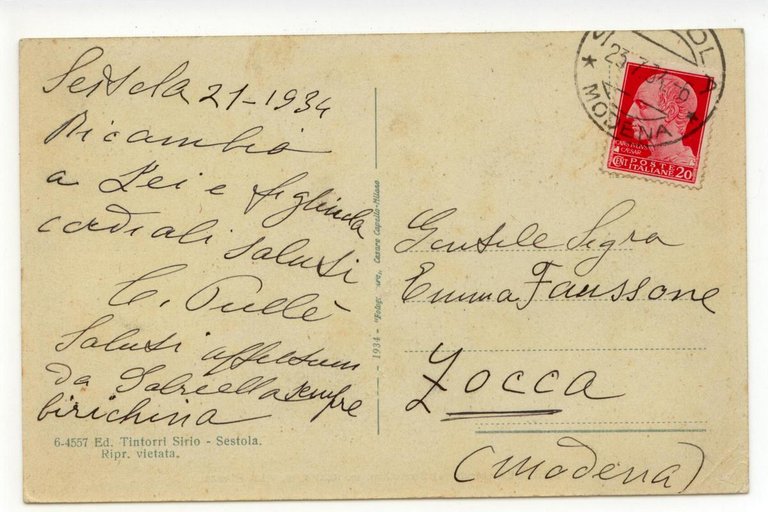 Sestola 21-1934
Ricambio
a Lei e figliuola
cordiali saluti
C. Pullè
Saluti affettuosi
da Gabriella sempre
birichina
6-4557 Ed. Tintorri Sirio - Sestola.
Ripr. vietata.
1934 - Cesare Capello-Milano
23.7.34
* MODENA *
CENT POSTE 20
ITALIANE
Gentile Sigra
Emma Faussone
Zocca
(Modena)